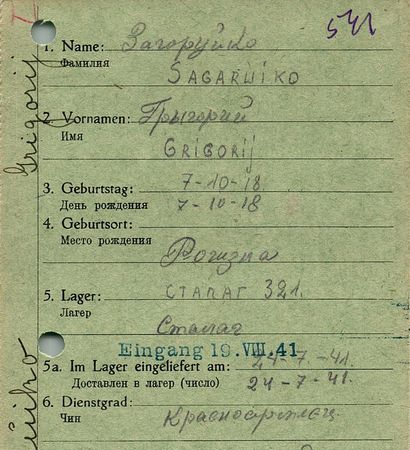 541
1. Name: Загоруйко
Фамилия
SAGARUIKO
2. Vornamen: Григорий
Имя
GRIGORIJ
3. Geburtstag: 7-10-18.
День рождения 7-10-18
4. Geburtsort:
Место рождения
Рогизна
5. Lager: СТАЛАГ 321.
Лагер
Сталаг
Eingang 19. VIII. 41
5a. Im Lager eingeliefert am: 24-7-41.
Доставлен в лагер (число) 24-7-41.
6. Dienstgrad:
Чин
Красноармеец
Grigorij